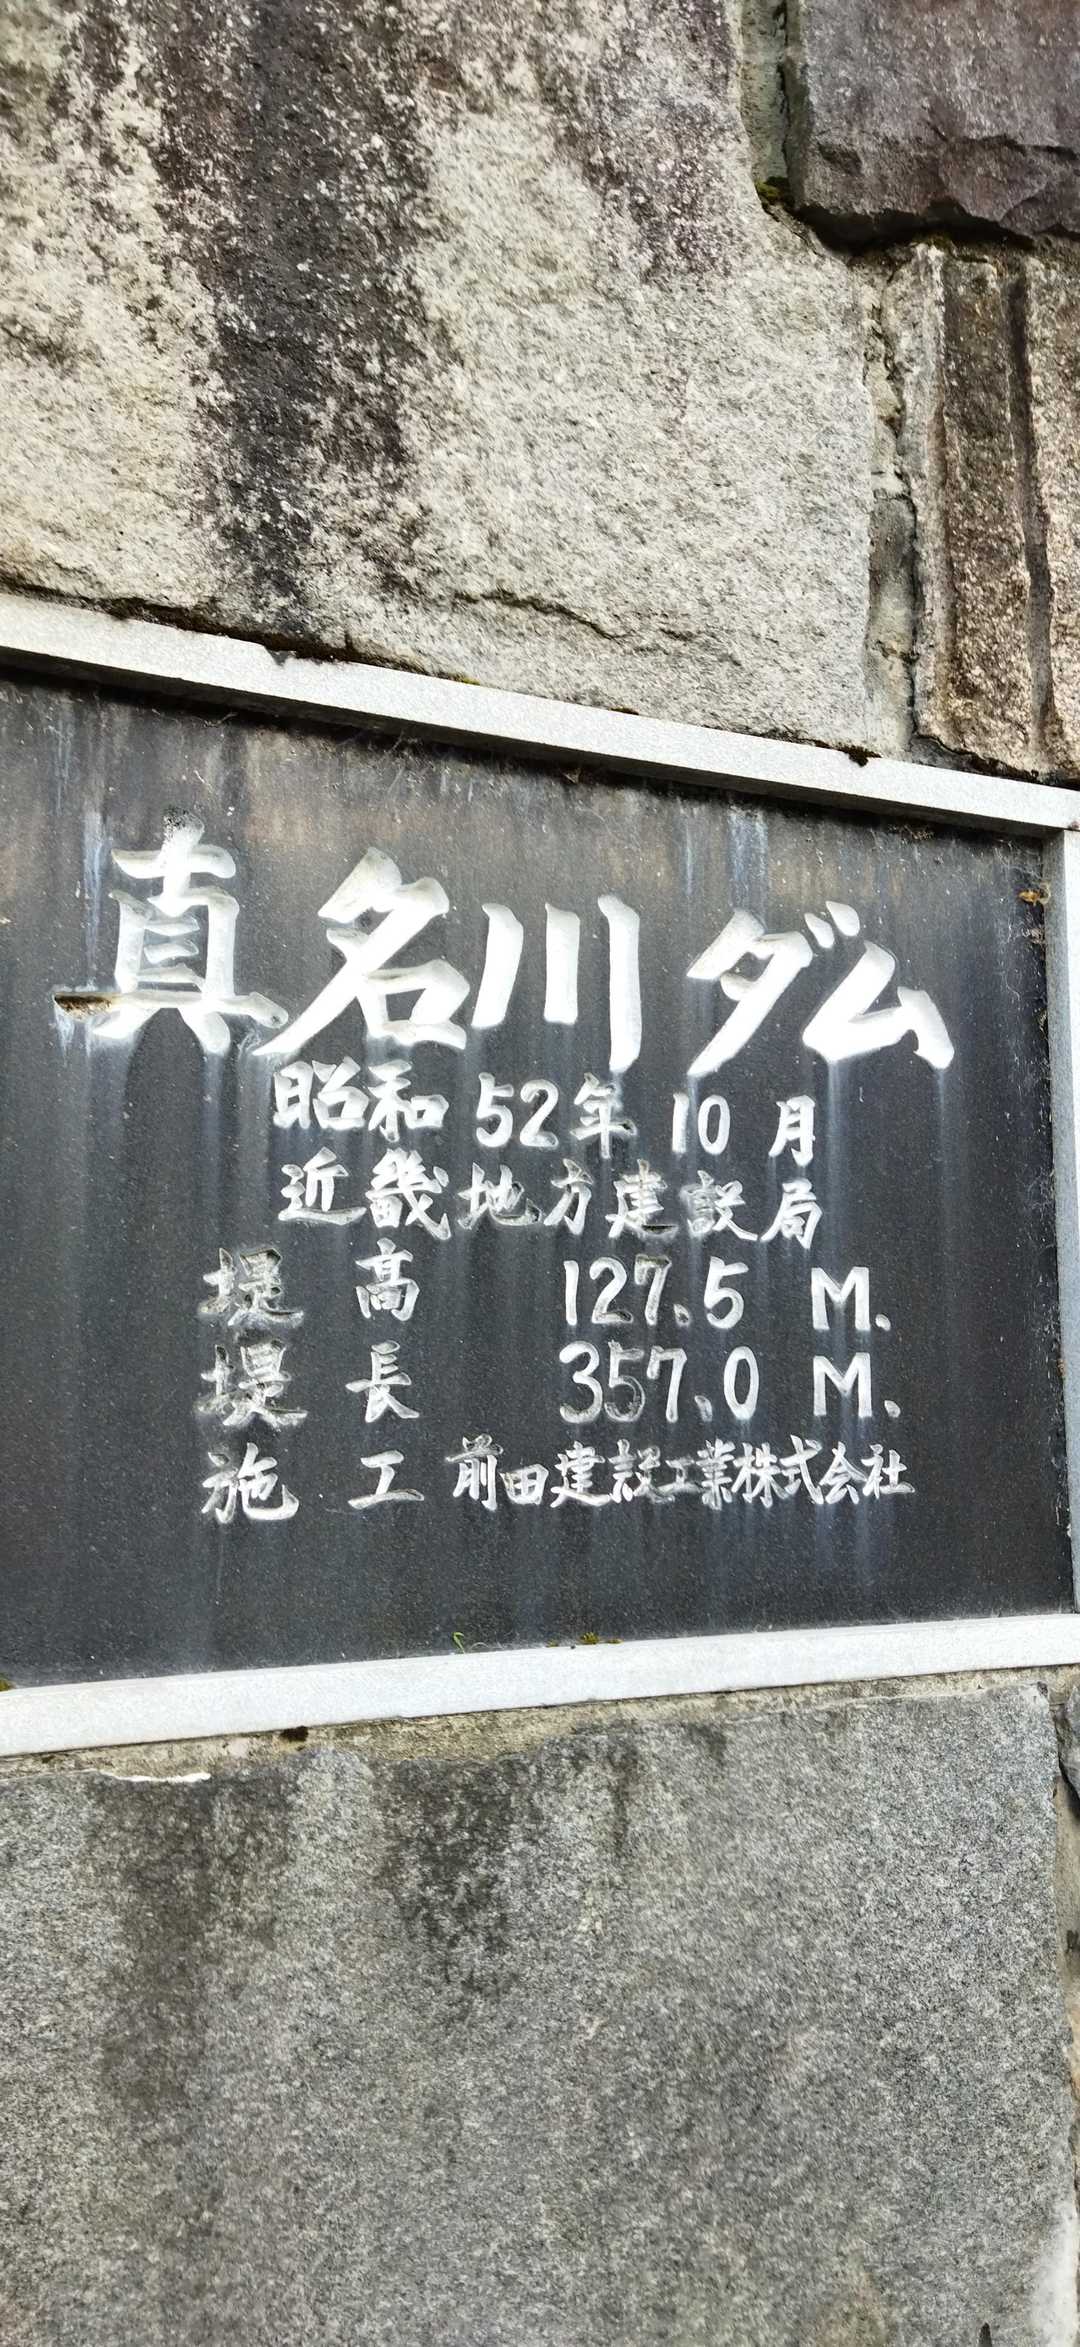 真名川ダム
昭和 52年 10月
近畿地方建設局
堤 高 127.5 M.
堤 長 357.0 M.
施 工 前田建設工業株式会社